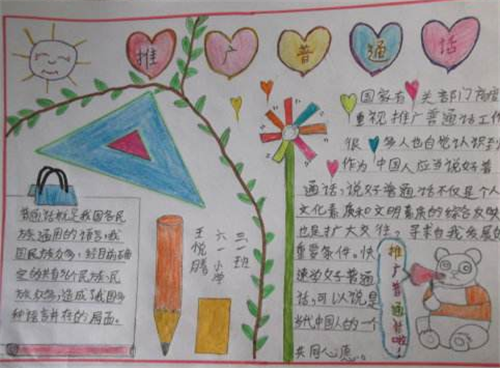 推广普通话
普通话就是我国各民
族通用的语言。我
国民族众多,
定的共有56个民族。民
族众多,造成我国多
种语言并存的局面。
王悦腾
六一小学
三一班
国家有关部门
重视推广普通话工作
很多人也自觉认识到
作为中国人应当说好普
通话;说好普通话不仅是个人
文化素质和文明素质的综合反映
也是扩大交往,寻求自我发展的
重要条件。快
速学好普通
话,可以说是
当代中国人的一个
共同人心愿。
推广普通话啦!